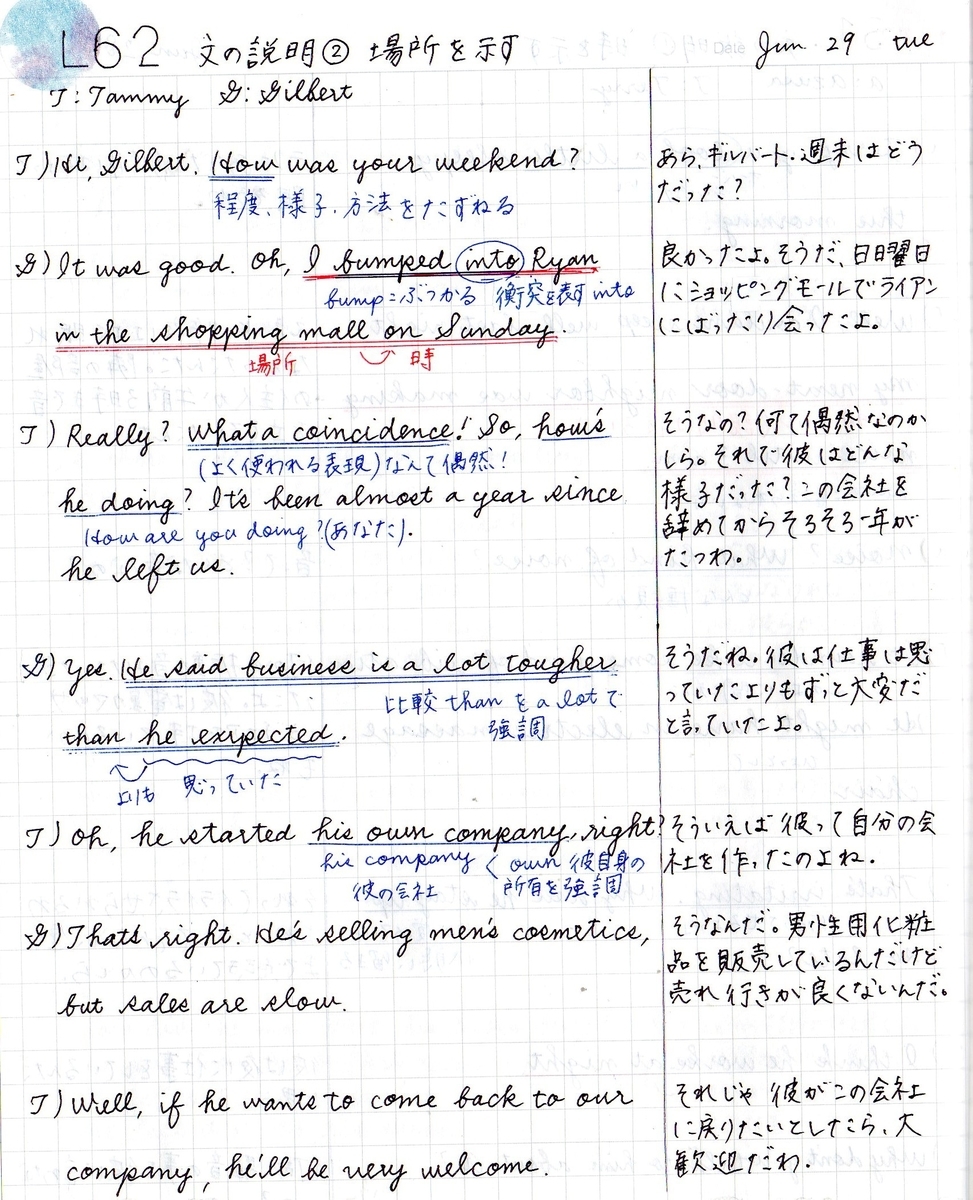 L62 文の説明② 場所を示す Date Jun 29 tue
T:Tammy G:Gilbert
T) Hi, Gilbert. How was your weekend?
程度、様子、方法をたずねる
あら、ギルバート・週末はどう
だった?
G) It was good. Oh, I bumped into Ryan
bump=ぶつかる 衝突を表す into
in the shopping mall on Sunday.
場所 時
良かったよ。そうだ、日曜日
にショッピングモールでライアン
にばったり会ったよ。
T) Really? What a coincidence! So, how's
(よく使われる表現)なんて偶然!
he doing? It's been almost a year since
How are you doing?(あなた).
he left us.
そうなの?何て偶然なのか
しら。それで彼はどんな
様子だった?この会社を
辞めてからそろそろ一年が
たつわ。
G) Yes. He said business is a lot tougher
比較 than を a lot で
強調
than he expected.
よりも 思っていた
そうだね。彼は仕事は思
っていたよりもずっと大変だ
と言っていたよ。
T) Oh, he started his own company, right?
his company < own 彼自身の
彼の会社 所有を強調
そういえば彼って自分の会
社を作ったのよね.
G) That's right. He's selling men's cosmetics,
but sales are slow.
そうなんだ。男性用化粧
品を販売しているんだけど
売れ行きが良くないんだ。
T) Well, if he wants to come back to our
company, he'll be very welcome.
それじゃ彼がこの会社
に戻りたいとしたら、大
歓迎だわ.